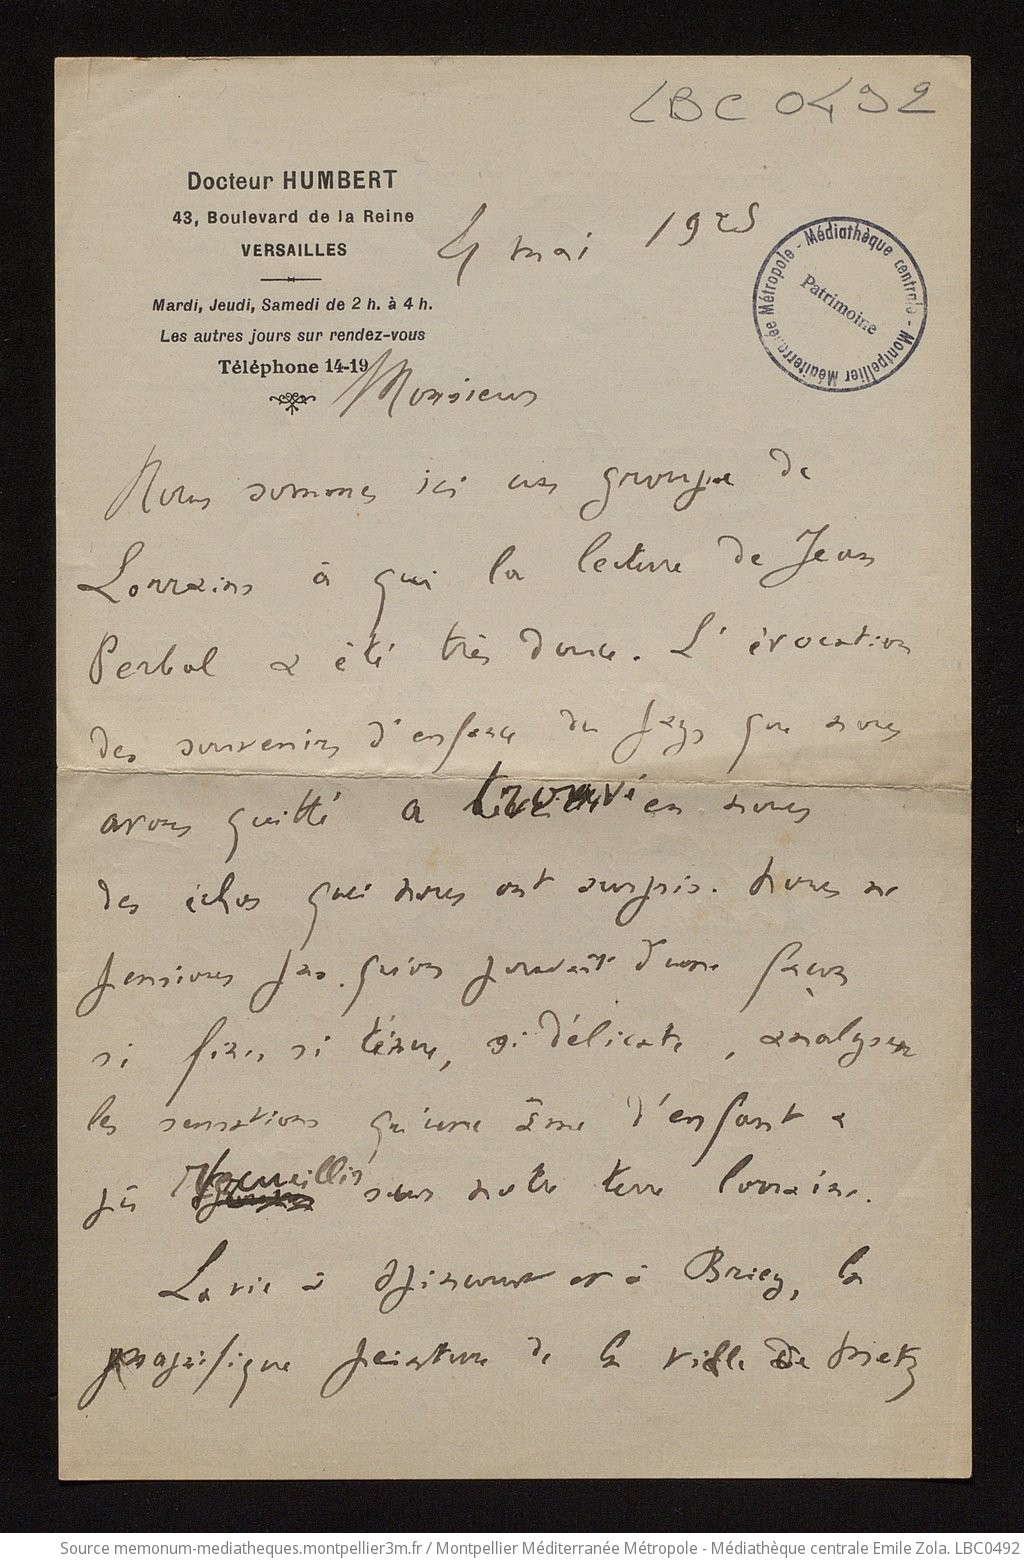 LBC 0492
Docteur HUMBERT
43, Boulevard de la Reine
VERSAILLES
Mardi, Jeudi, Samedi de 2 h. à 4 h.
Les autres jours sur rendez-vous
Téléphone 14-19
4 mai 1925
Médiathèque centrale - Montpellier Méditerranée Métropole -
Patrimoine
Monsieur
Nous sommes ici un groupe de
Lorrains à qui la lecture de Jean
Perbal a été très douce. L'évocation
des souvenirs d'enfance du pays que nous
avons quitté a trouvé en nous
des échos qui nous ont surpris. Nous ne
pensions pas qu'on pouvait d'une façon
si fine, si ténue, si délicate, analyser
les sensations qu'une âme d'enfant a
pû recueillir sur notre terre lorraine.
La vie à et à Briey, la
magnifique peinture de la ville de Metz
Source memonum-mediatheques.montpellier3m.fr / Montpellier Méditerranée Métropole - Médiathèque centrale Emile Zola. LBC0492